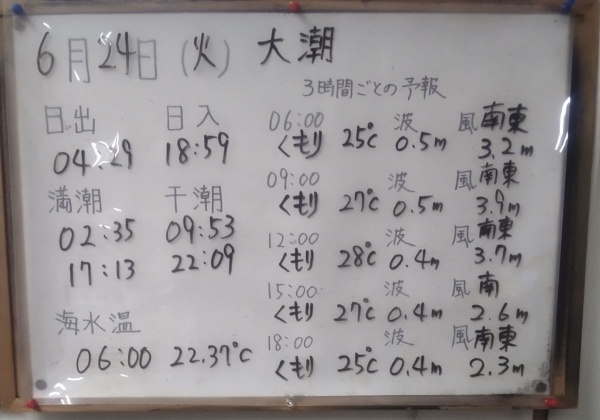 6月24日(火) 大潮
3時間ごとの予報
日出 日入
04:29 18:59
満潮 干潮
02:35 09:53
17:13 22:09
海水温
06:00 22.37℃
06:00 波 風 南東
くもり 25℃ 0.5m 3.2m
09:00 波 風 南東
くもり 27℃ 0.5m 3.9m
12:00 波 風 南東
くもり 28℃ 0.4m 3.7m
15:00 波 風 南
くもり 27℃ 0.4m 2.6m
18:00 波 風 南東
くもり 25℃ 0.4m 2.3m